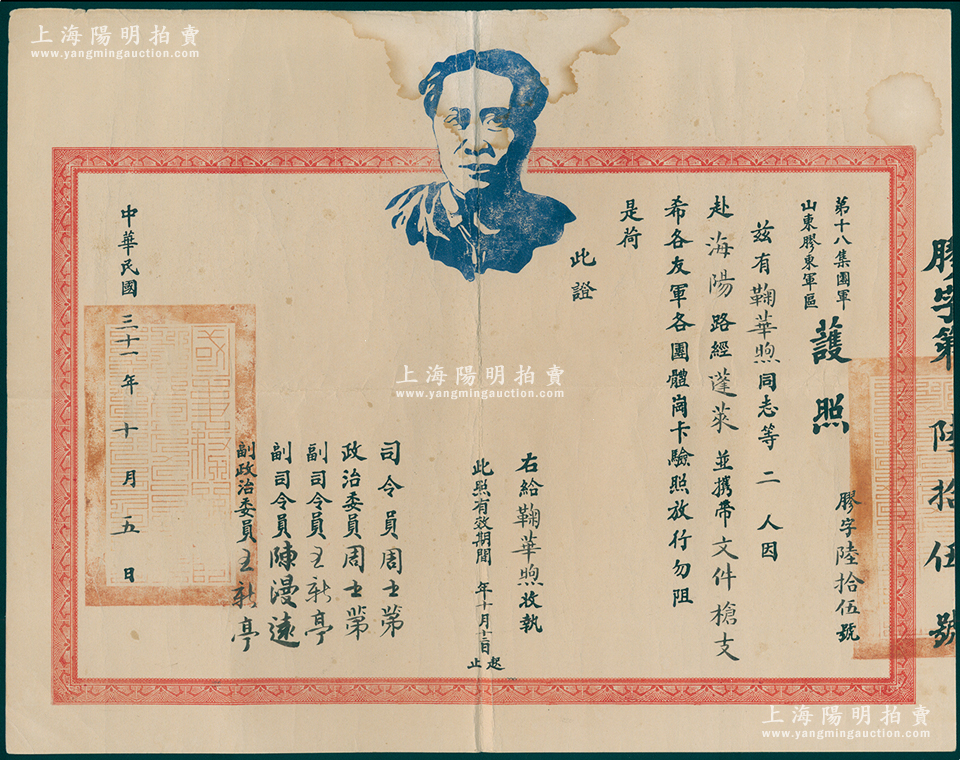 上海陽明拍賣
www.yangmingauction.com
膠字第陸拾伍號
膠字陸拾伍號
第十八集團軍
山東膠東軍區
護照
茲有鞠華煦同志等二人因
赴海陽路經蓬萊並攜帶文件槍支
希各友軍各團體崗卡驗照放行勿阻
是荷
此證
右給鞠華煦收執
此照有效期間 年十月
起
止
司令員周士第
政治委員周士第
副司令員王新亭
副司令員陳漫遠
副政治委員王新亭
中華民國三十一年十月五日
上海陽明拍賣
www.yangmingauction.com
上海陽明拍賣
www.yangmingauction.com